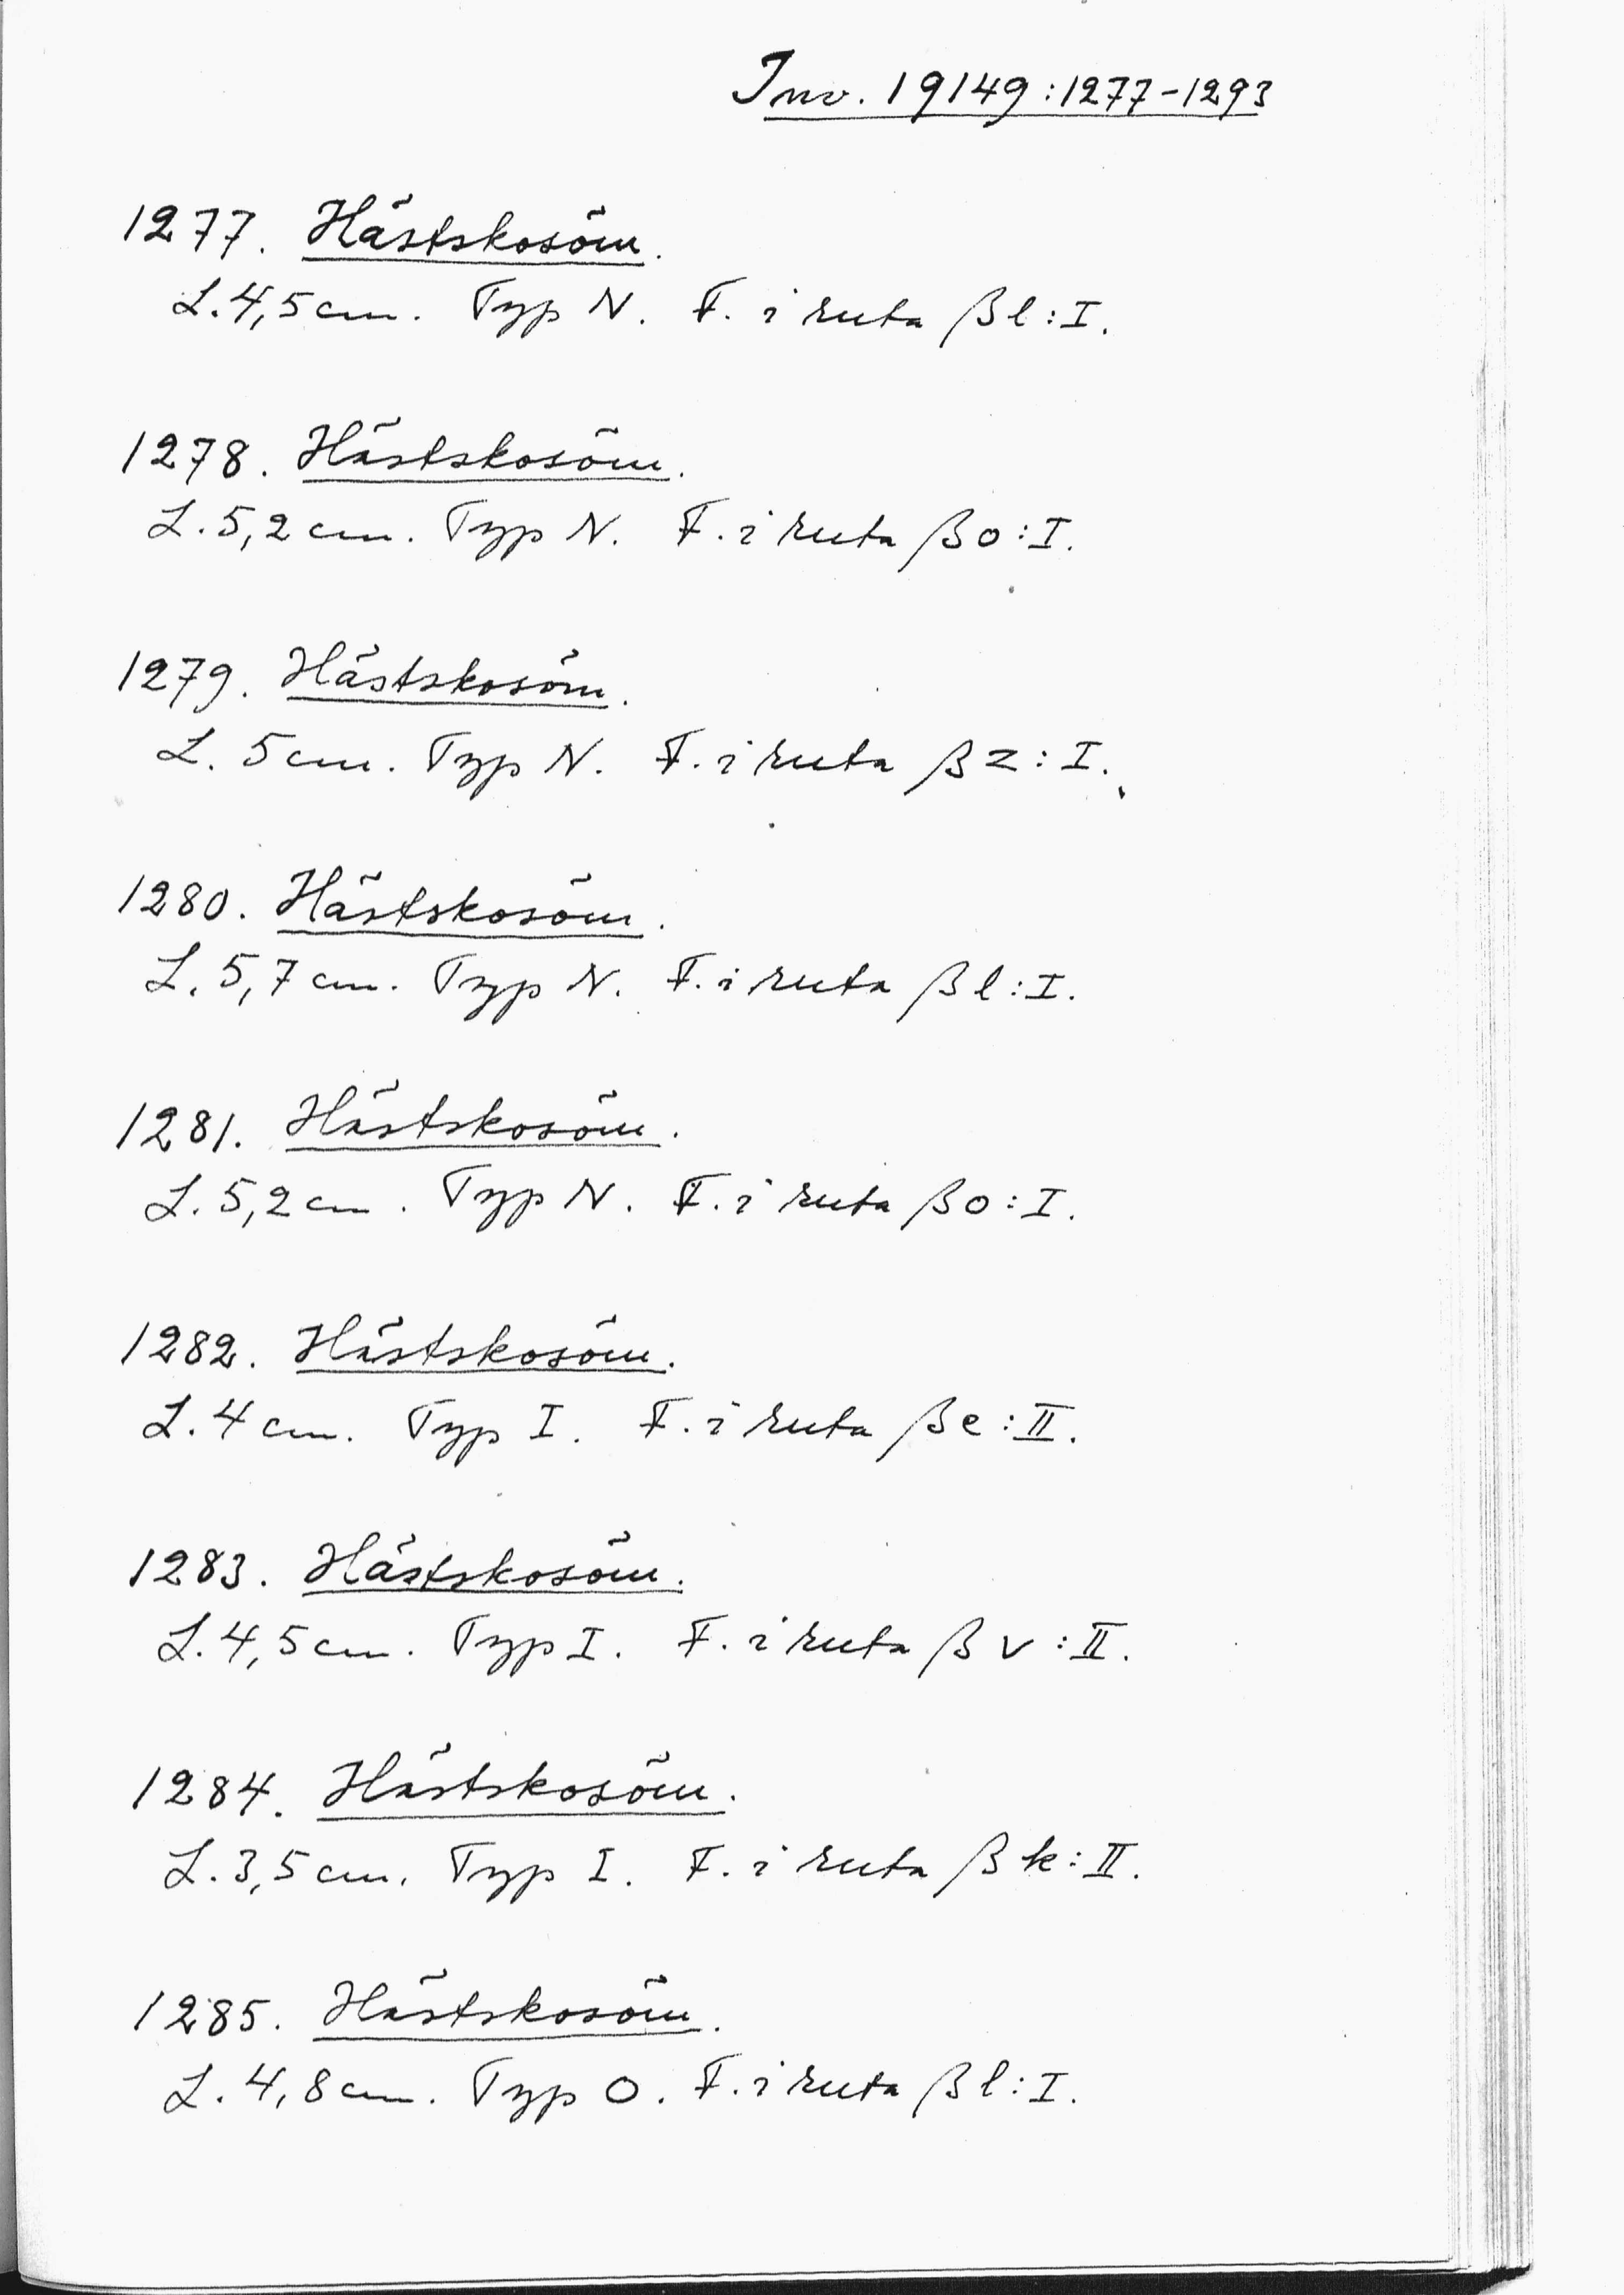 Inv. 19149:1277-1293
1277. Hästskosöm.
L. 4,5 cm. Typ N. F. i ruta βl:I.
1278. Hästskosöm.
L. 5,2 cm. Typ N. F. i ruta βo:I.
1279. Hästskosöm.
L. 5 cm. Typ N. F. i ruta βz:I.
1280. Hästskosöm.
L. 5,7 cm. Typ N. F. i ruta βl:I.
1281. Hästskosöm.
L. 5,2 cm. Typ N. F. i ruta βo:I.
1282. Hästskosöm.
L. 4 cm. Typ I. F. i ruta βe:II.
1283. Hästskosöm.
L. 4,5 cm. Typ I. F. i ruta βv:II.
1284. Hästskosöm.
L. 3,5 cm. Typ I. F. i ruta βk:II.
1285. Hästskosöm.
L. 4,8 cm. Typ O. F. i ruta βl:I.